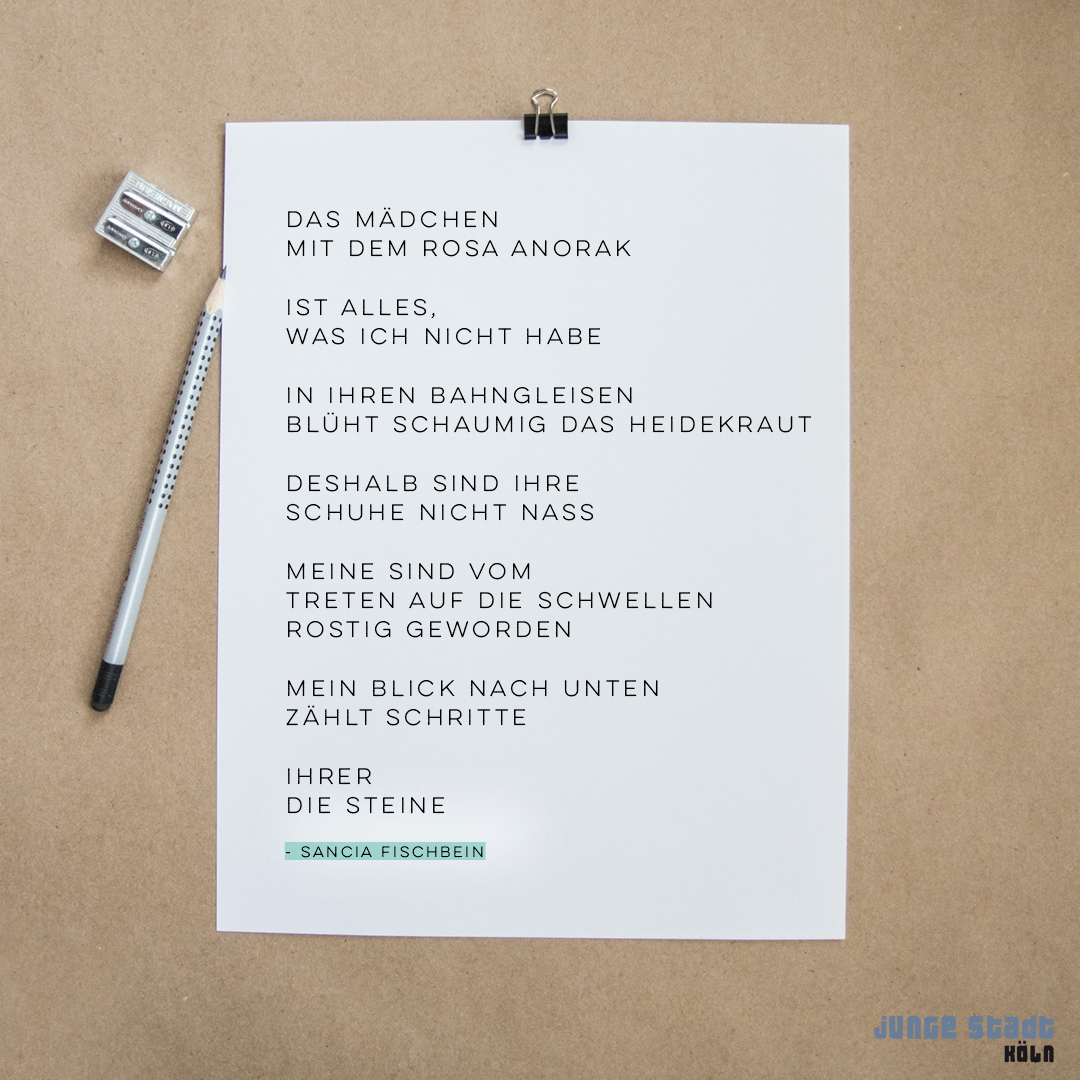 DAS MÄDCHEN
MIT DEM ROSA ANORAK
IST ALLES,
WAS ICH NICHT HABE
IN IHREN BAHNGLEISEN
BLÜHT SCHAUMIG DAS HEIDEKRAUT
DESHALB SIND IHRE
SCHUHE NICHT NASS
MEINE SIND VOM
TRETEN AUF DIE SCHWELLEN
ROSTIG GEWORDEN
MEIN BLICK NACH UNTEN
ZÄHLT SCHRITTE
IHRER
DIE STEINE
- SANCIA FISCHBEIN
JUNGE STADT
KÖLN